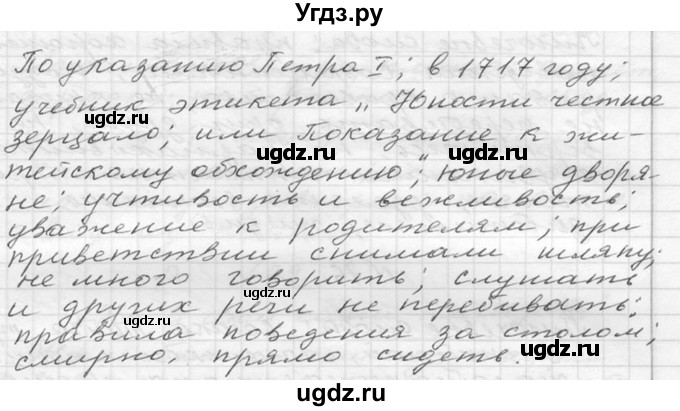 Угдз.ру
По указанию Петра I; в 1717 году;
учебник этикета „Юности честное
зерцало; или Показание к жи-
тейскому обхождению"; юные дворя-
не; учтивость и вежливость;
уважение к родителям; при
приветствии снимали шляпу;
не много говорить; слушать
и других речи не перебивать;
правила поведения за столом;
смирно, прямо сидеть.
ugdz.ru
ugdz.ru
ugdz.ru
ugdz.ru
ugdz.ru
ugdz.ru
ugdz.ru